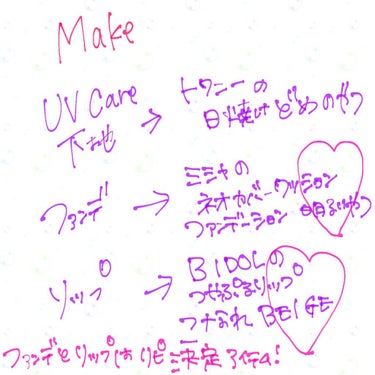 Make
UV Care
下地
→ トワニーの
日焼けどめのやつ
ファンデ → ミシャの
ネオカバークッション
ファンデーション 明るいやつ
リップ → BIDOLの
つやぷるリップ
つよがれ BEIGE
ファンデとリップはリピ決定アイテム!